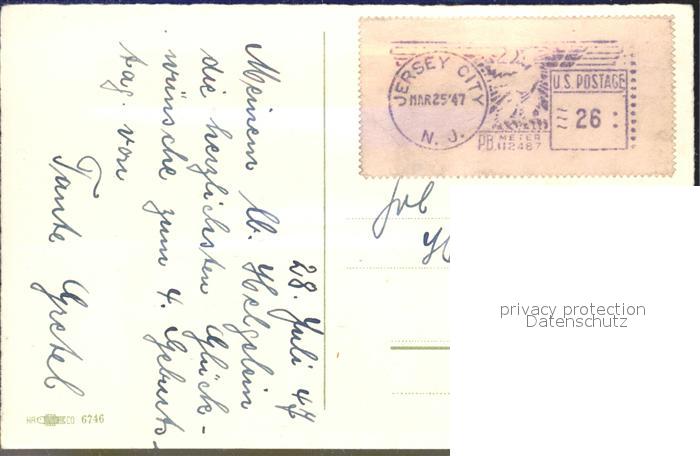 28. Juli 47
Meinem lb. Helgelein
die herzlichsten Glück-
wünsche zum 4. Geburts-
tag. von
Tante Gretel
JERSEY CITY
MAR 25 '47
N. J.
U.S. POSTAGE
26
P.B. METER
112487
privacy protection
Datenschutz
6746